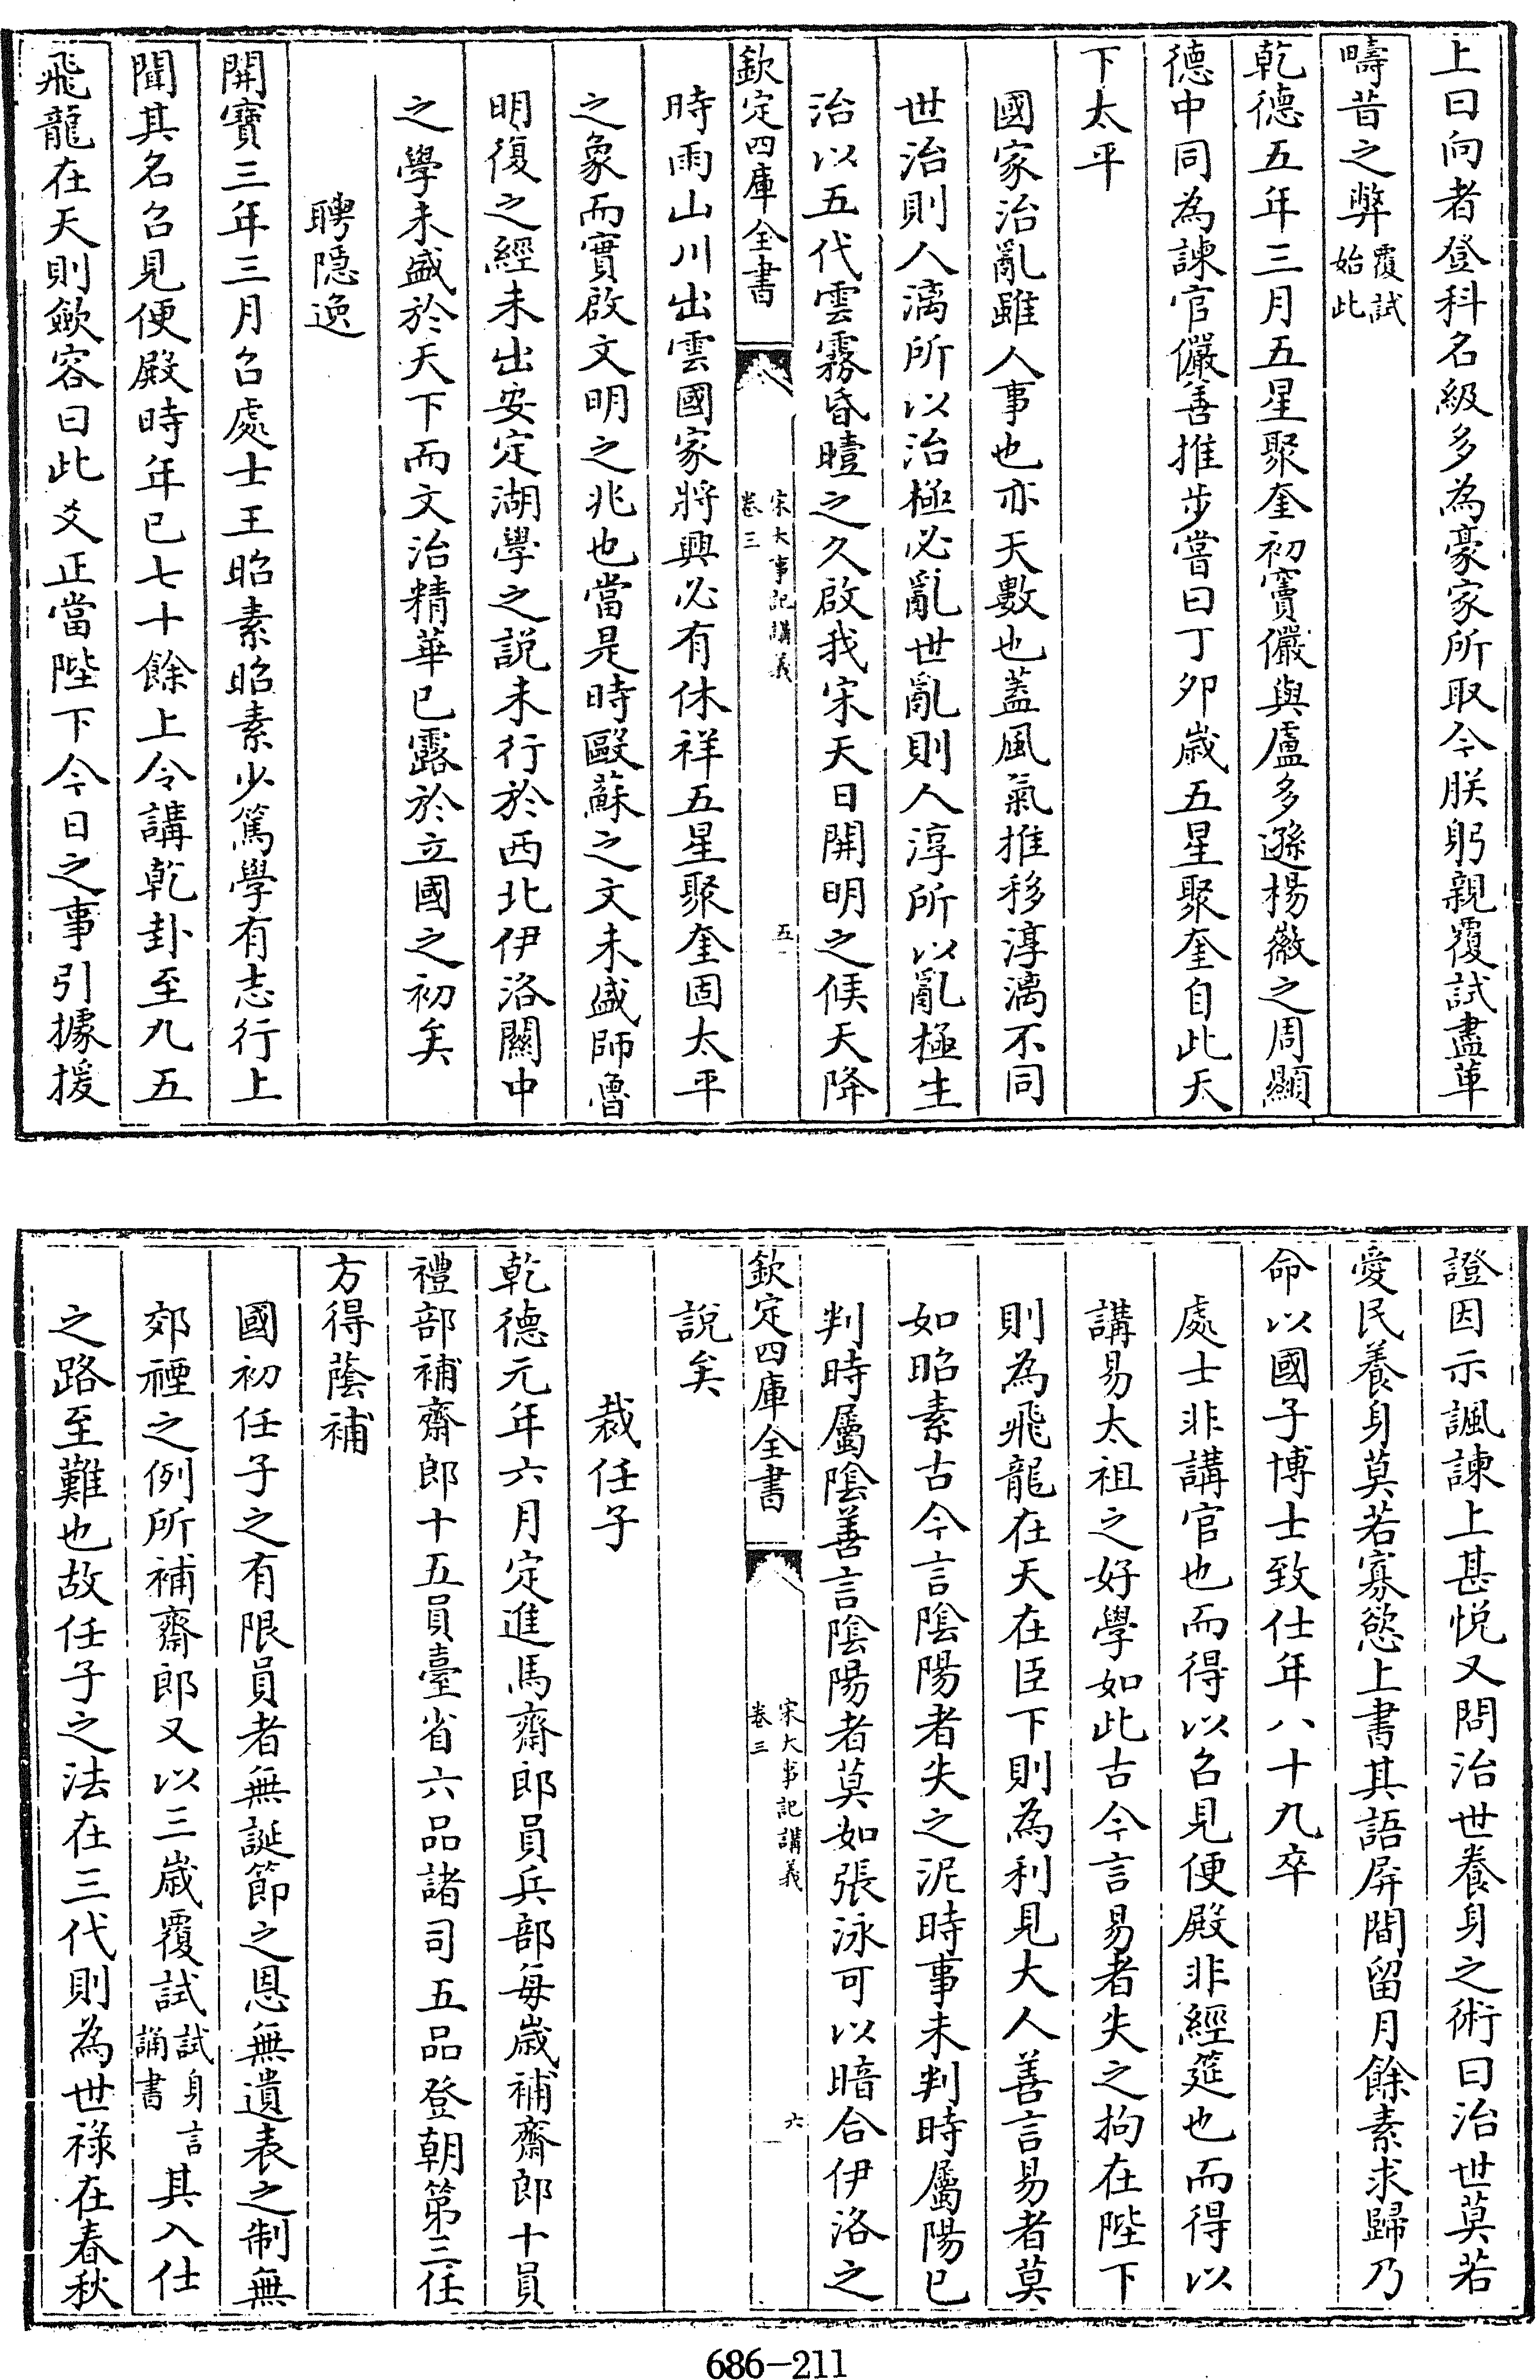 上曰向者登科名級多為豪家所取今朕躬親覆試盡革
疇昔之弊覆試始此
乾德五年三月五星聚奎初竇儼與盧多遜楊徽之周顯
德中同為諫官儼善推步嘗曰丁卯歲五星聚奎自此天
下太平
國家治亂雖人事也亦天數也蓋風氣推移淳漓不同
世治則人漓所以治極必亂世亂則人淳所以亂極生
治以五代雲霧昏曀之久啟我宋天日開明之候天降
欽定四庫全書
宋大事記講義
卷三
五
時雨山川出雲國家將興必有休祥五星聚奎固太平
之象而實啟文明之兆也當是時歐蘇之文未盛師魯
明復之經未出安定湖學之說未行於西北伊洛關中
之學未盛於天下而文治精華已露於立國之初矣
聘隱逸
開寶三年三月召處士王昭素昭素少篤學有志行上
聞其名召見便殿時年已七十餘上令講乾卦至九五
飛龍在天則斂容曰此爻正當陛下今日之事引據援
證因示諷諫上甚悅又問治世養身之術曰治世莫若
愛民養身莫若寡慾上書其語屏間留月餘素求歸乃
命以國子博士致仕年八十九卒
處士非講官也而得以召見便殿非經筵也而得以
講易太祖之好學如此古今言易者失之拘在陛下
則為飛龍在天在臣下則為利見大人善言易者莫
如昭素古今言陰陽者失之泥時事未判時屬陽已
判時屬陰善言陰陽者莫如張泳可以暗合伊洛之
欽定四庫全書
宋大事記講義
卷三
六
說矣
裁任子
乾德元年六月定進馬齋郎員兵部每歲補齋郎十員
禮部補齋郎十五員臺省六品諸司五品登朝第三任
方得蔭補
國初任子之有限員者無誕節之恩無遺表之制無
郊禋之例所補齋郎又以三歲覆試試身言誦書其入仕
之路至難也故任子之法在三代則為世祿在春秋
686-211